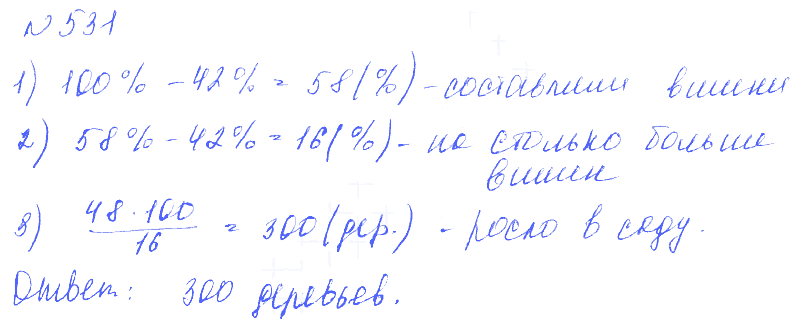 №531
1) 100% - 42% = 58(%) - составили вишни
2) 58% - 42% = 16(%) - на столько больше
вишен
3) 48·100/16 = 300 (дер.) - росло в саду.
Ответ: 300 деревьев.